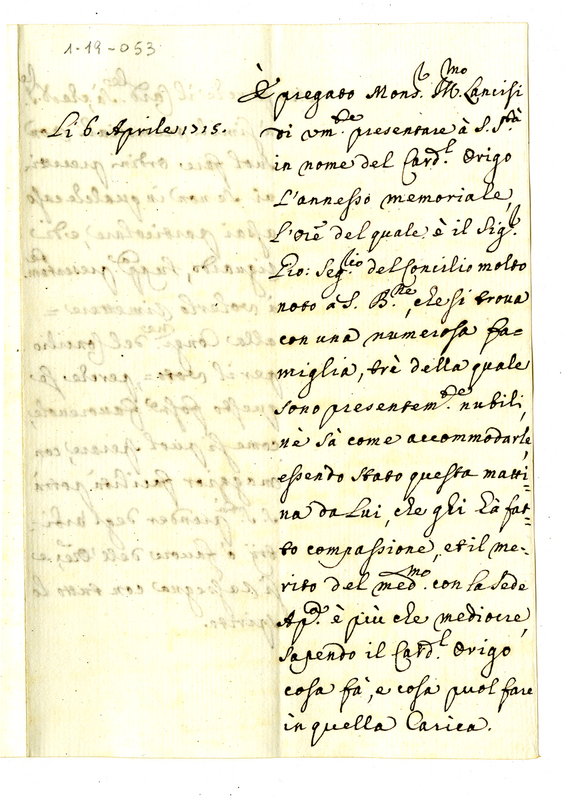 1-19-053
Li 6. Aprile 1715.
È pregato Mons.r Ill.mo Lancisi
di um.te presentare à S. S.tà
in nome del Card.l Origo
L'annesso memoriale,
l'Ore del quale è il Sig.r
Pro: Seg.rio del Concilio molto
noto a S. B.ne, che si trova
con una numerosa fa=
miglia, trè della quale
sono presentem.te nubili,
nè sà come accommodarle,
essendo stato questa matti=
na da Lui, che gli hà fat=
to compassione, et il me=
rito del med.mo con la Sede
Ap.ca è più che mediocre,
sapendo il Card.l Origo
cosa fà, e cosa puol fare
in quella Carica.